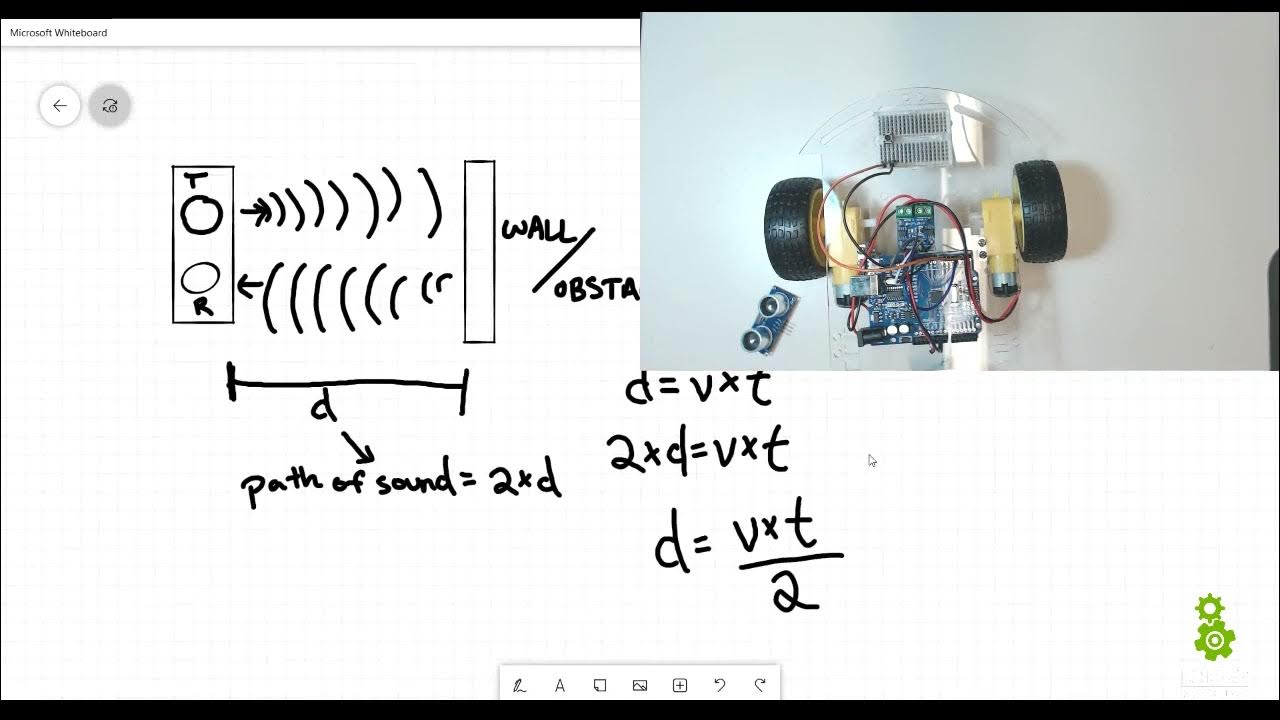 Microsoft Whiteboard
T
WALL/
OBSTA
R
d
path of sound = 2×d
d = v×t
2×d = v×t
d = v×t
2
A